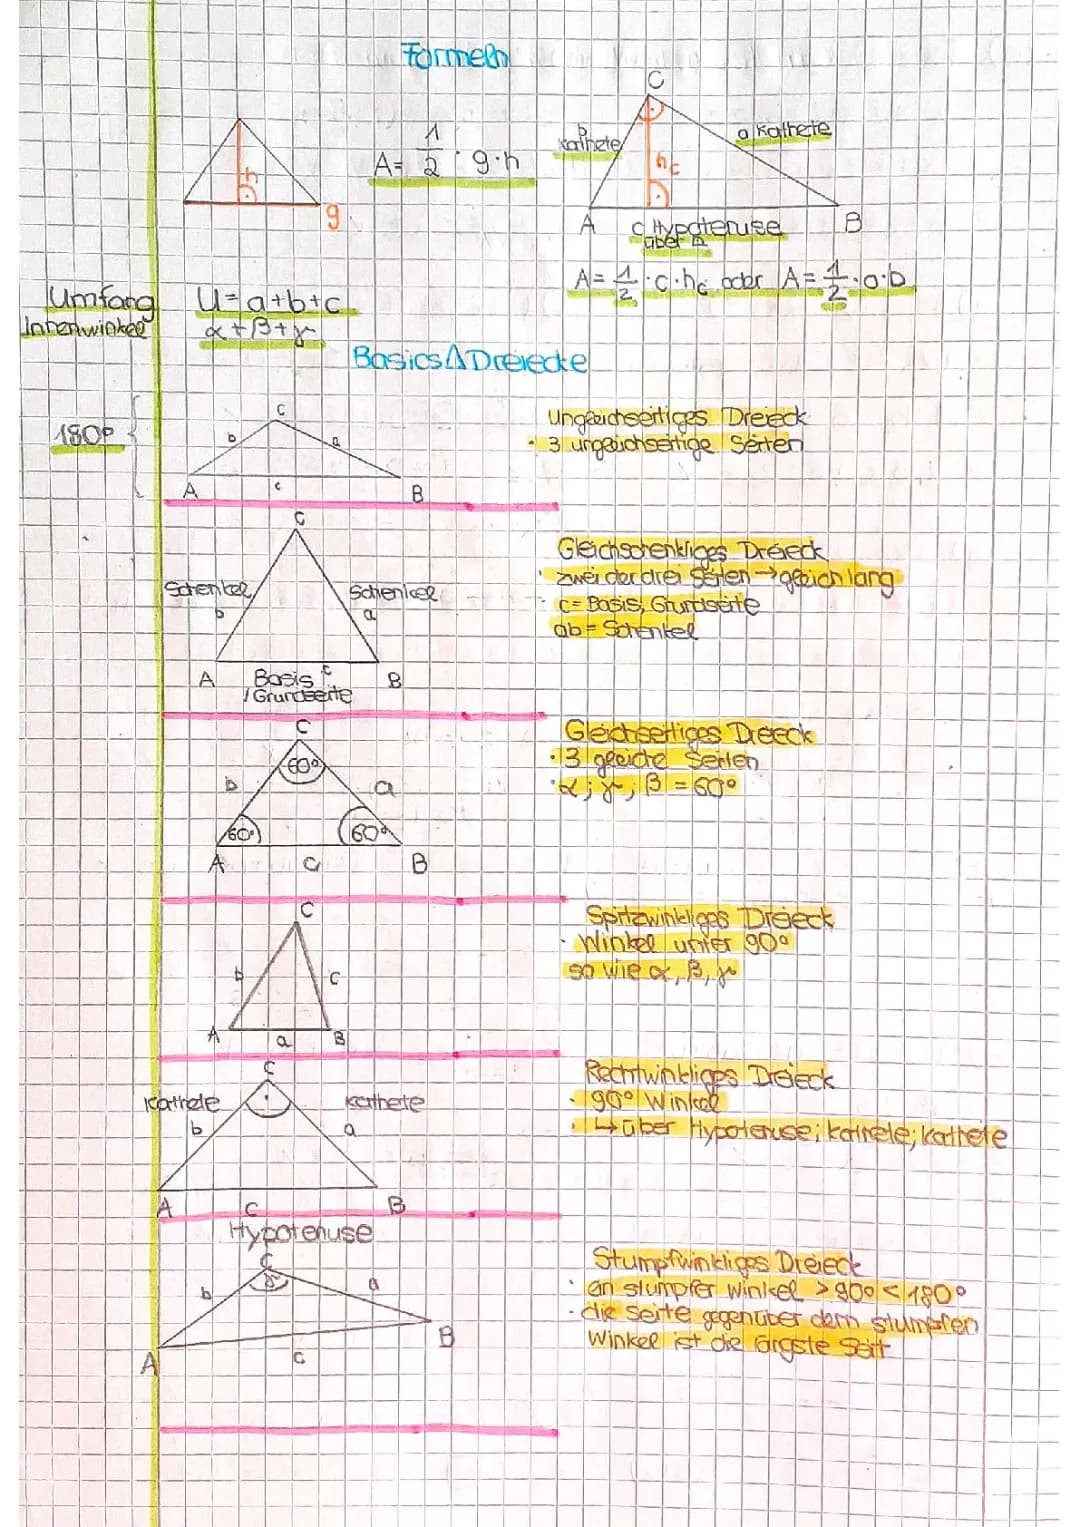 Formeln
h
g
A = 1/2 · g · h
C
b Kathete
a Kathete
hc
A
c Hypotenuse
B
über
A = 1/2 · c · hc oder A = 1/2 · a · b
Umfang U = a + b + c
Innenwinkel α + β + γ
Basics Δ Dreiecke
180°
C
b
a
A
c
B
Ungleichseitiges Dreieck
· 3 ungleichseitige Seiten
C
Schenkel
b
Schenkel
a
A
Basis c
B
/Grundseite
Gleichschenkliges Dreieck
· zwei der drei Seiten → gleich lang
· c = Basis, Grundseite
ab = Schenkel
C
60°
b
a
60°
60°
A
c
B
Gleichseitiges Dreieck
· 3 gleiche Seiten
· α ; γ ; β = 60°
C
b
c
A
a
B
Spitzwinkliges Dreieck
· Winkel unter 90°
so wie α, β, γ
C
Kathete
b
Kathete
a
A
C
B
Hypotenuse
Rechtwinkliges Dreieck
· 90° Winkel
· ↳ über Hypotenuse; Kathete; Kathete
C
γ
b
a
A
c
B
Stumpfwinkliges Dreieck
· ein stumpfer Winkel > 90° < 180°
· die Seite gegenüber dem stumpfen
Winkel ist die längste Seit